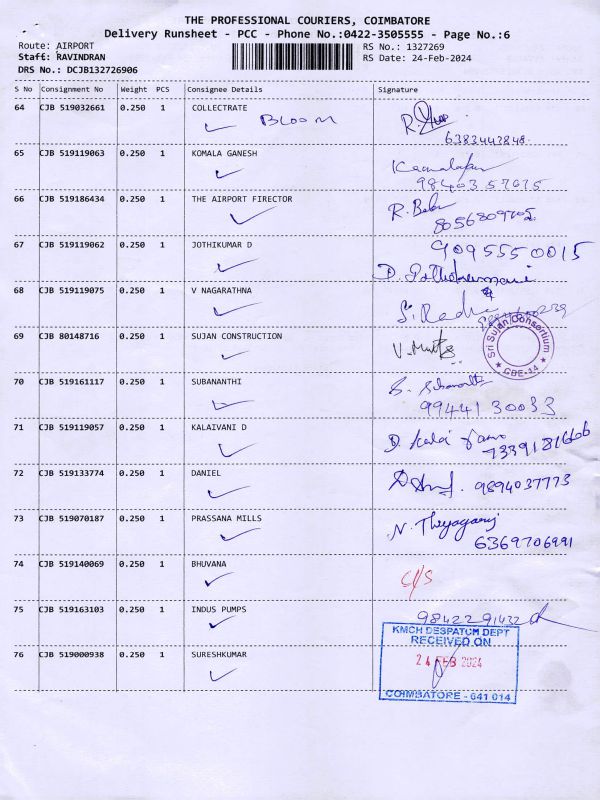 THE PROFESSIONAL COURIERS, COIMBATORE
Delivery Runsheet - PCC - Phone No.:0422-3505555 - Page No.:6
Route: AIRPORT RS No.: 1327269
Staff: RAVINDRAN RS Date: 24-Feb-2024
DRS No.: DCJB132726906
S No Consignment No Weight PCS Consignee Details Signature
64 CJB 519032661 0.250 1 COLLECTRATE
BLOOM
6383443848
65 CJB 519119063 0.250 1 KOMALA GANESH
98403 57075
66 CJB 519186434 0.250 1 THE AIRPORT FIRECTOR
R. Babu
67 CJB 519119062 0.250 1 JOTHIKUMAR D
9095550015
68 CJB 519119075 0.250 1 V NAGARATHNA
S. Radha
69 CJB 80148716 0.250 1 SUJAN CONSTRUCTION
Sri Sujan Consortium
CBE-14
70 CJB 519161117 0.250 1 SUBANANTHI
99441 30033
71 CJB 519119057 0.250 1 KALAIVANI D
D. Kalai
72 CJB 519133774 0.250 1 DANIEL
9894037773
73 CJB 519070187 0.250 1 PRASSANA MILLS
N. Thyagaraj
6369706991
74 CJB 519140069 0.250 1 BHUVANA
C/S
75 CJB 519163103 0.250 1 INDUS PUMPS
9842291432
KMCH DESPATCH DEPT
RECEIVED ON
76 CJB 519000938 0.250 1 SURESHKUMAR
24 FEB 2024
COIMBATORE - 641 014